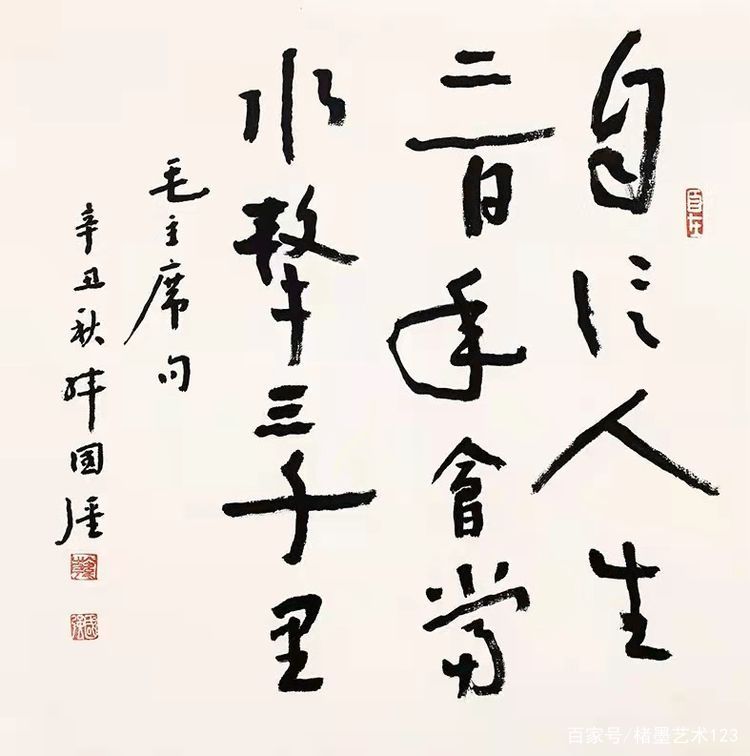 自信人生
二百年會當
水擊三千里
毛主席句
辛丑秋韩国强
自在
百家号/楮墨艺术123